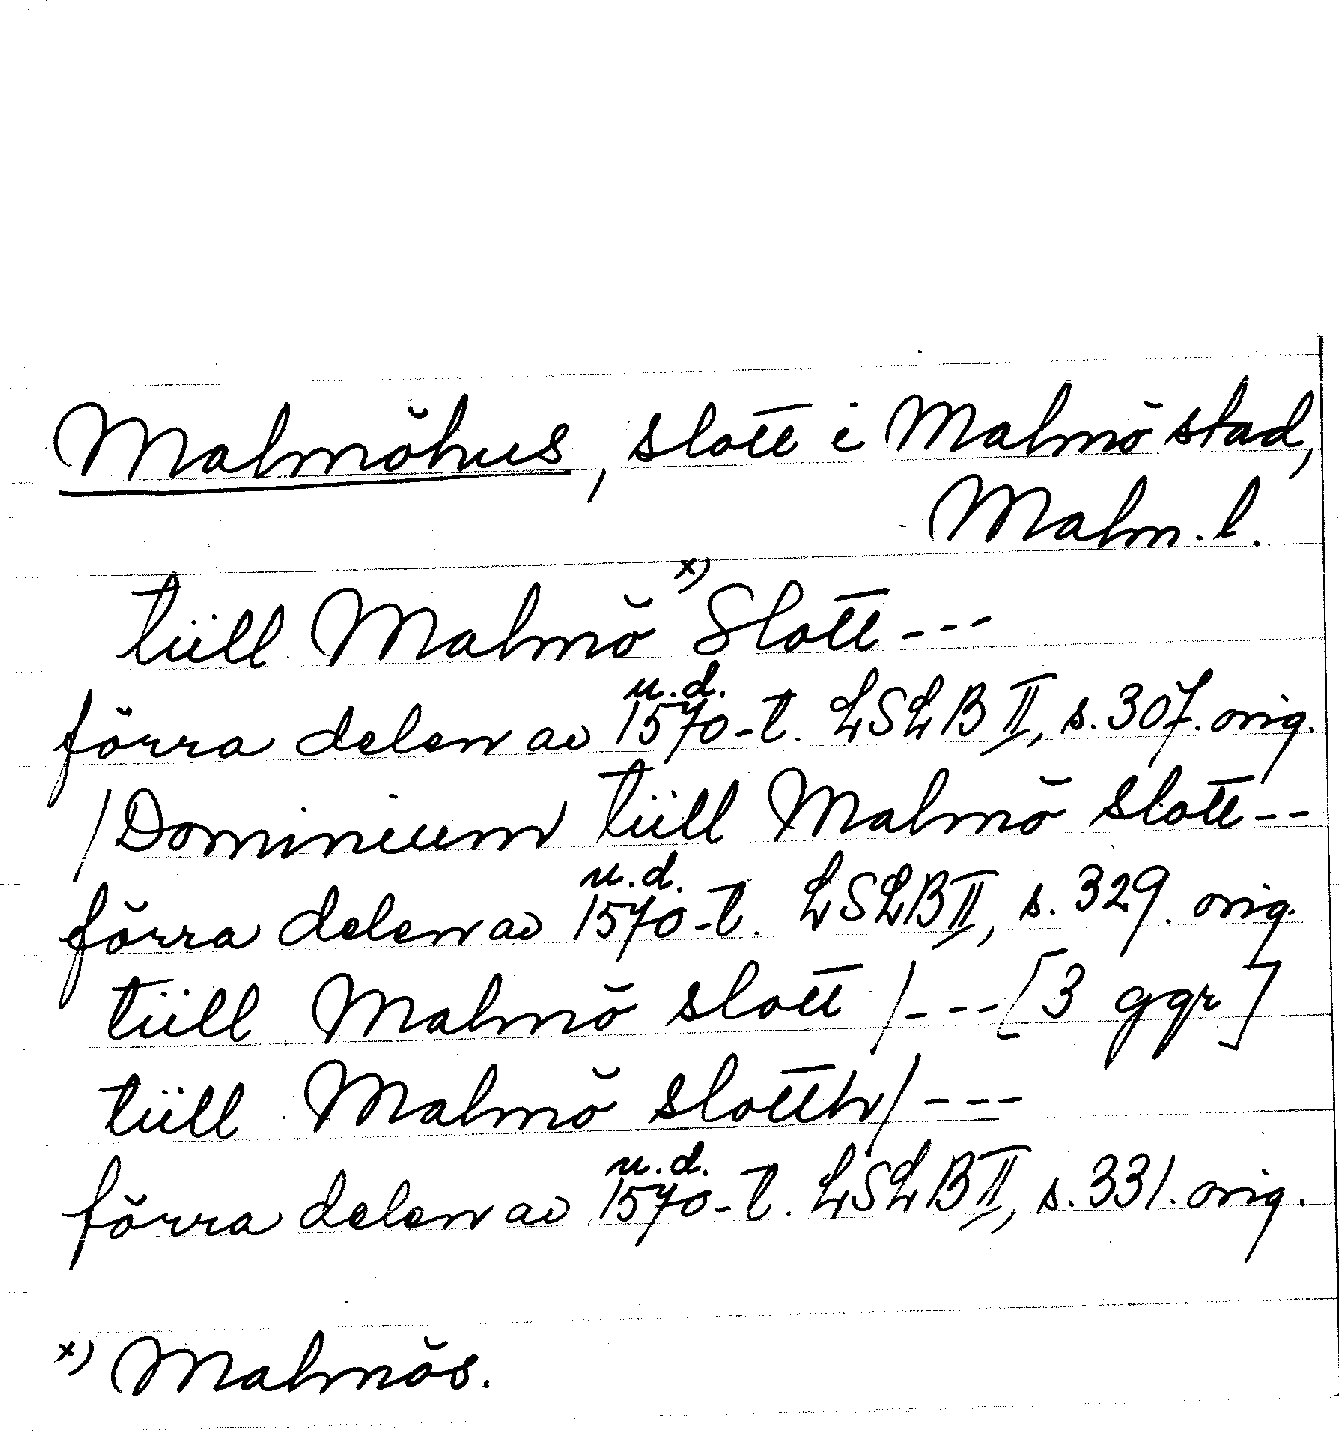 Malmöhus, slott i Malmö stad,
Malm. l.
tiill Malmö x) Slott ---
förra delen av u.d. 1570-t. LSLB II, s. 307. orig.
/Dominium tiill Malmö slott --
förra delen av u.d. 1570-t. LSLB II, s. 329. orig.
tiill Malmö slott /---[3 ggr]
tiill Malmö slotth/---
förra delen av u.d. 1570-t. LSLB II, s. 331. orig.
x) Malmös.